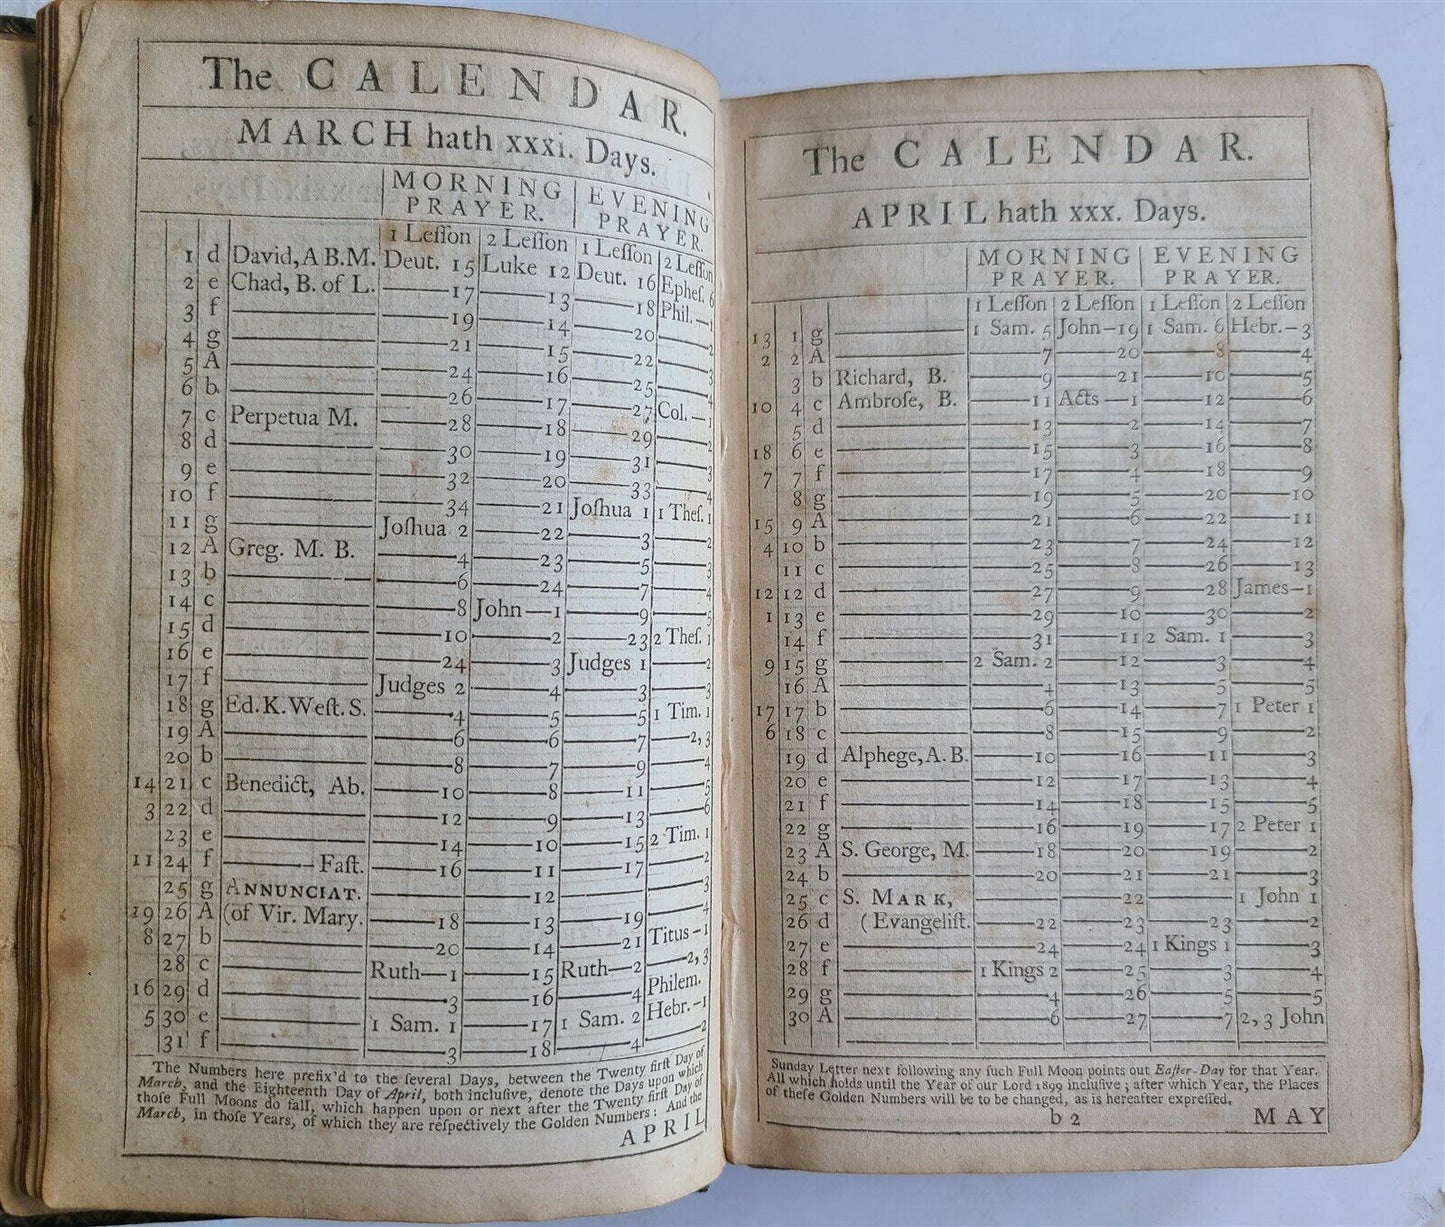 The CALENDAR.
MARCH hath xxxi. Days.
MORNING PRAYER. EVENING PRAYER.
1 Leſſon 2 Leſſon 1 Leſſon 2 Leſſon
1 d David, A B.M. Deut. 15 Luke 12 Deut. 16 Epheſ. 6
2 e Chad, B. of L. —17 —13 —18 Phil.—1
3 f — —19 —14 —20 —2
4 g — —21 —15 —22 —3
5 A — —24 —16 —25 —4
6 b — —26 —17 —27 Col.—1
7 c Perpetua M. —28 —18 —29 —2
8 d — —30 —19 —31 —3
9 e — —32 —20 —33 —4
10 f — —34 —21 Joſhua 1 1 Theſ. 1
11 g — Joſhua 2 —22 —3 —2
12 A Greg. M. B. —4 —23 —5 —3
13 b — —6 —24 —7 —4
14 c — —8 John—1 —9 —5
15 d — —10 —2 —23 2 Theſ. 1
16 e — —24 —3 Judges 1 —2
17 f — Judges 2 —4 —3 —3
18 g Ed.K.Weſt.S. —4 —5 —5 1 Tim. 1
19 A — —6 —6 —7 —2, 3
20 b — —8 —7 —9 —4
14 21 c Benedict, Ab. —10 —8 —11 —5
3 22 d — —12 —9 —13 —6
23 e — —14 —10 —15 2 Tim. 1
11 24 f —Faſt. —16 —11 —17 —2
25 g ANNUNCIAT. — —12 — —3
19 26 A (of Vir. Mary. —18 —13 —19 —4
8 27 b — —20 —14 —21 Titus—1
28 c — Ruth—1 —15 Ruth—2 —2, 3
16 29 d — —3 —16 —4 Philem.
5 30 e — 1 Sam. 1 —17 1 Sam. 2 Hebr.—1
31 f — —3 —18 —4 —2
The Numbers here prefix'd to the ſeveral Days, between the Twenty firſt Day of
March, and the Eighteenth Day of April, both incluſive, denote the Days upon which
thoſe Full Moons do fall, which happen upon or next after the Twenty firſt Day of
March, in thoſe Years, of which they are reſpectively the Golden Numbers: And the
APRIL
The CALENDAR.
APRIL hath xxx. Days.
MORNING PRAYER. EVENING PRAYER.
1 Leſſon 2 Leſſon 1 Leſſon 2 Leſſon
13 1 g — 1 Sam. 5 John—19 1 Sam. 6 Hebr.—3
2 2 A — —7 —20 —8 —4
3 b Richard, B. —9 —21 —10 —5
10 4 c Ambroſe, B. —11 Acts—1 —12 —6
5 d — —13 —2 —14 —7
18 6 e — —15 —3 —16 —8
7 7 f — —17 —4 —18 —9
8 g — —19 —5 —20 —10
15 9 A — —21 —6 —22 —11
4 10 b — —23 —7 —24 —12
11 c — —25 —8 —26 —13
12 12 d — —27 —9 —28 James—1
1 13 e — —29 —10 —30 —2
14 f — —31 —11 2 Sam. 1 —3
9 15 g — 2 Sam. 2 —12 —3 —4
16 A — —4 —13 —5 —5
17 17 b — —6 —14 —7 1 Peter 1
6 18 c — —8 —15 —9 —2
19 d Alphege, A. B. —10 —16 —11 —3
20 e — —12 —17 —13 —4
21 f — —14 —18 —15 —5
22 g — —16 —19 —17 2 Peter 1
23 A S. George, M. —18 —20 —19 —2
24 b — —20 —21 —21 —3
25 c S. MARK, — —22 — 1 John 1
26 d (Evangeliſt. —22 —23 —23 —2
27 e — —24 —24 1 Kings 1 —3
28 f — 1 Kings 2 —25 —3 —4
29 g — —4 —26 —5 —5
30 A — —6 —27 —7 2, 3 John
Sunday Letter next following any ſuch Full Moon points out Eaſter-Day for that Year.
All which holds until the Year of our Lord 1899 incluſive; after which Year, the Places
of theſe Golden Numbers will be to be changed, as is hereafter expreſſed.
b 2 MAY